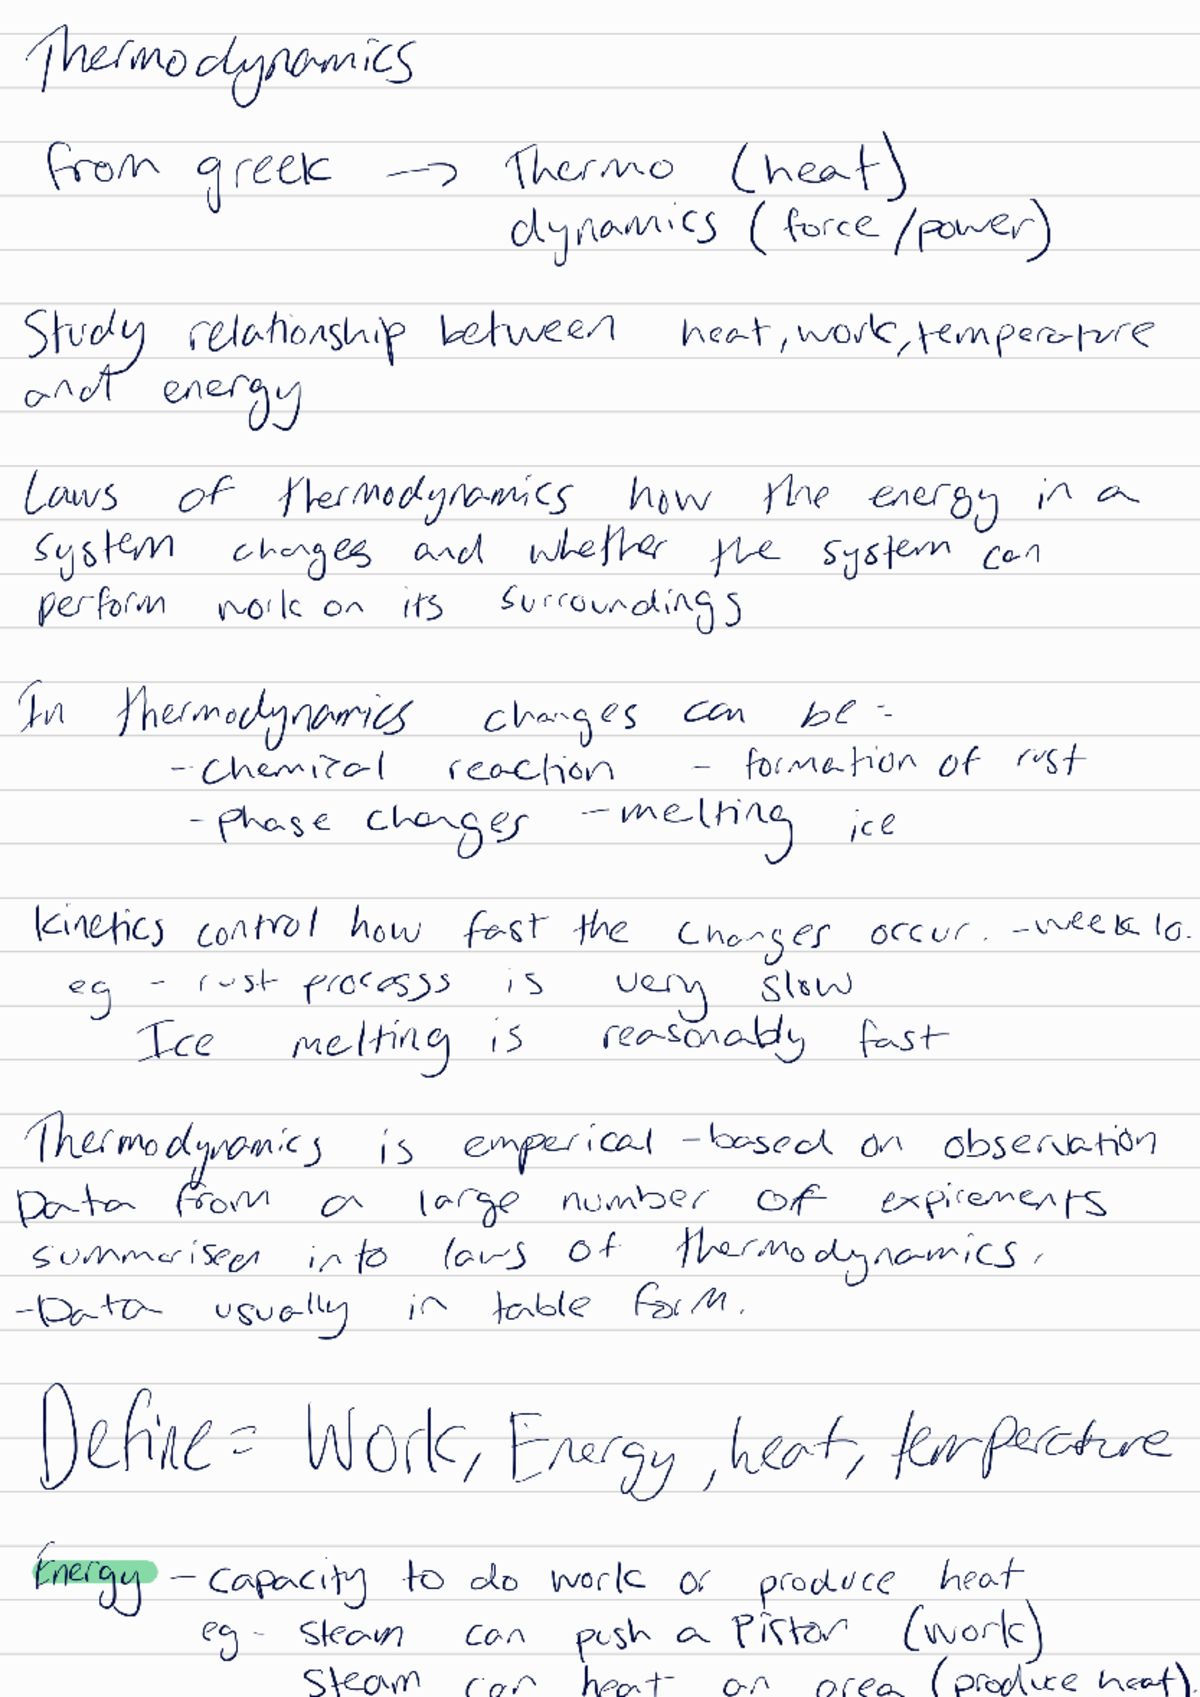 Thermodynamics
from greek → Thermo (heat)
dynamics (force/power)
Study relationship between heat, work, temperature
and energy
Laws of thermodynamics how the energy in a
system changes and whether the system can
perform work on its surroundings
In thermodynamics changes can be :
- chemical reaction - formation of rust
- phase changes - melting ice
kinetics control how fast the changes occur. - week 10.
eg - rust processs is very slow
Ice melting is reasonably fast
Thermodynamics is emperical - based on observation
Data from a large number of expirements
summarised into laws of thermodynamics.
- Data usually in table form.
Define = Work, Energy, heat, temperature
Energy - capacity to do work or produce heat
eg - steam can push a piston (work)
steam can heat an area (produce heat).